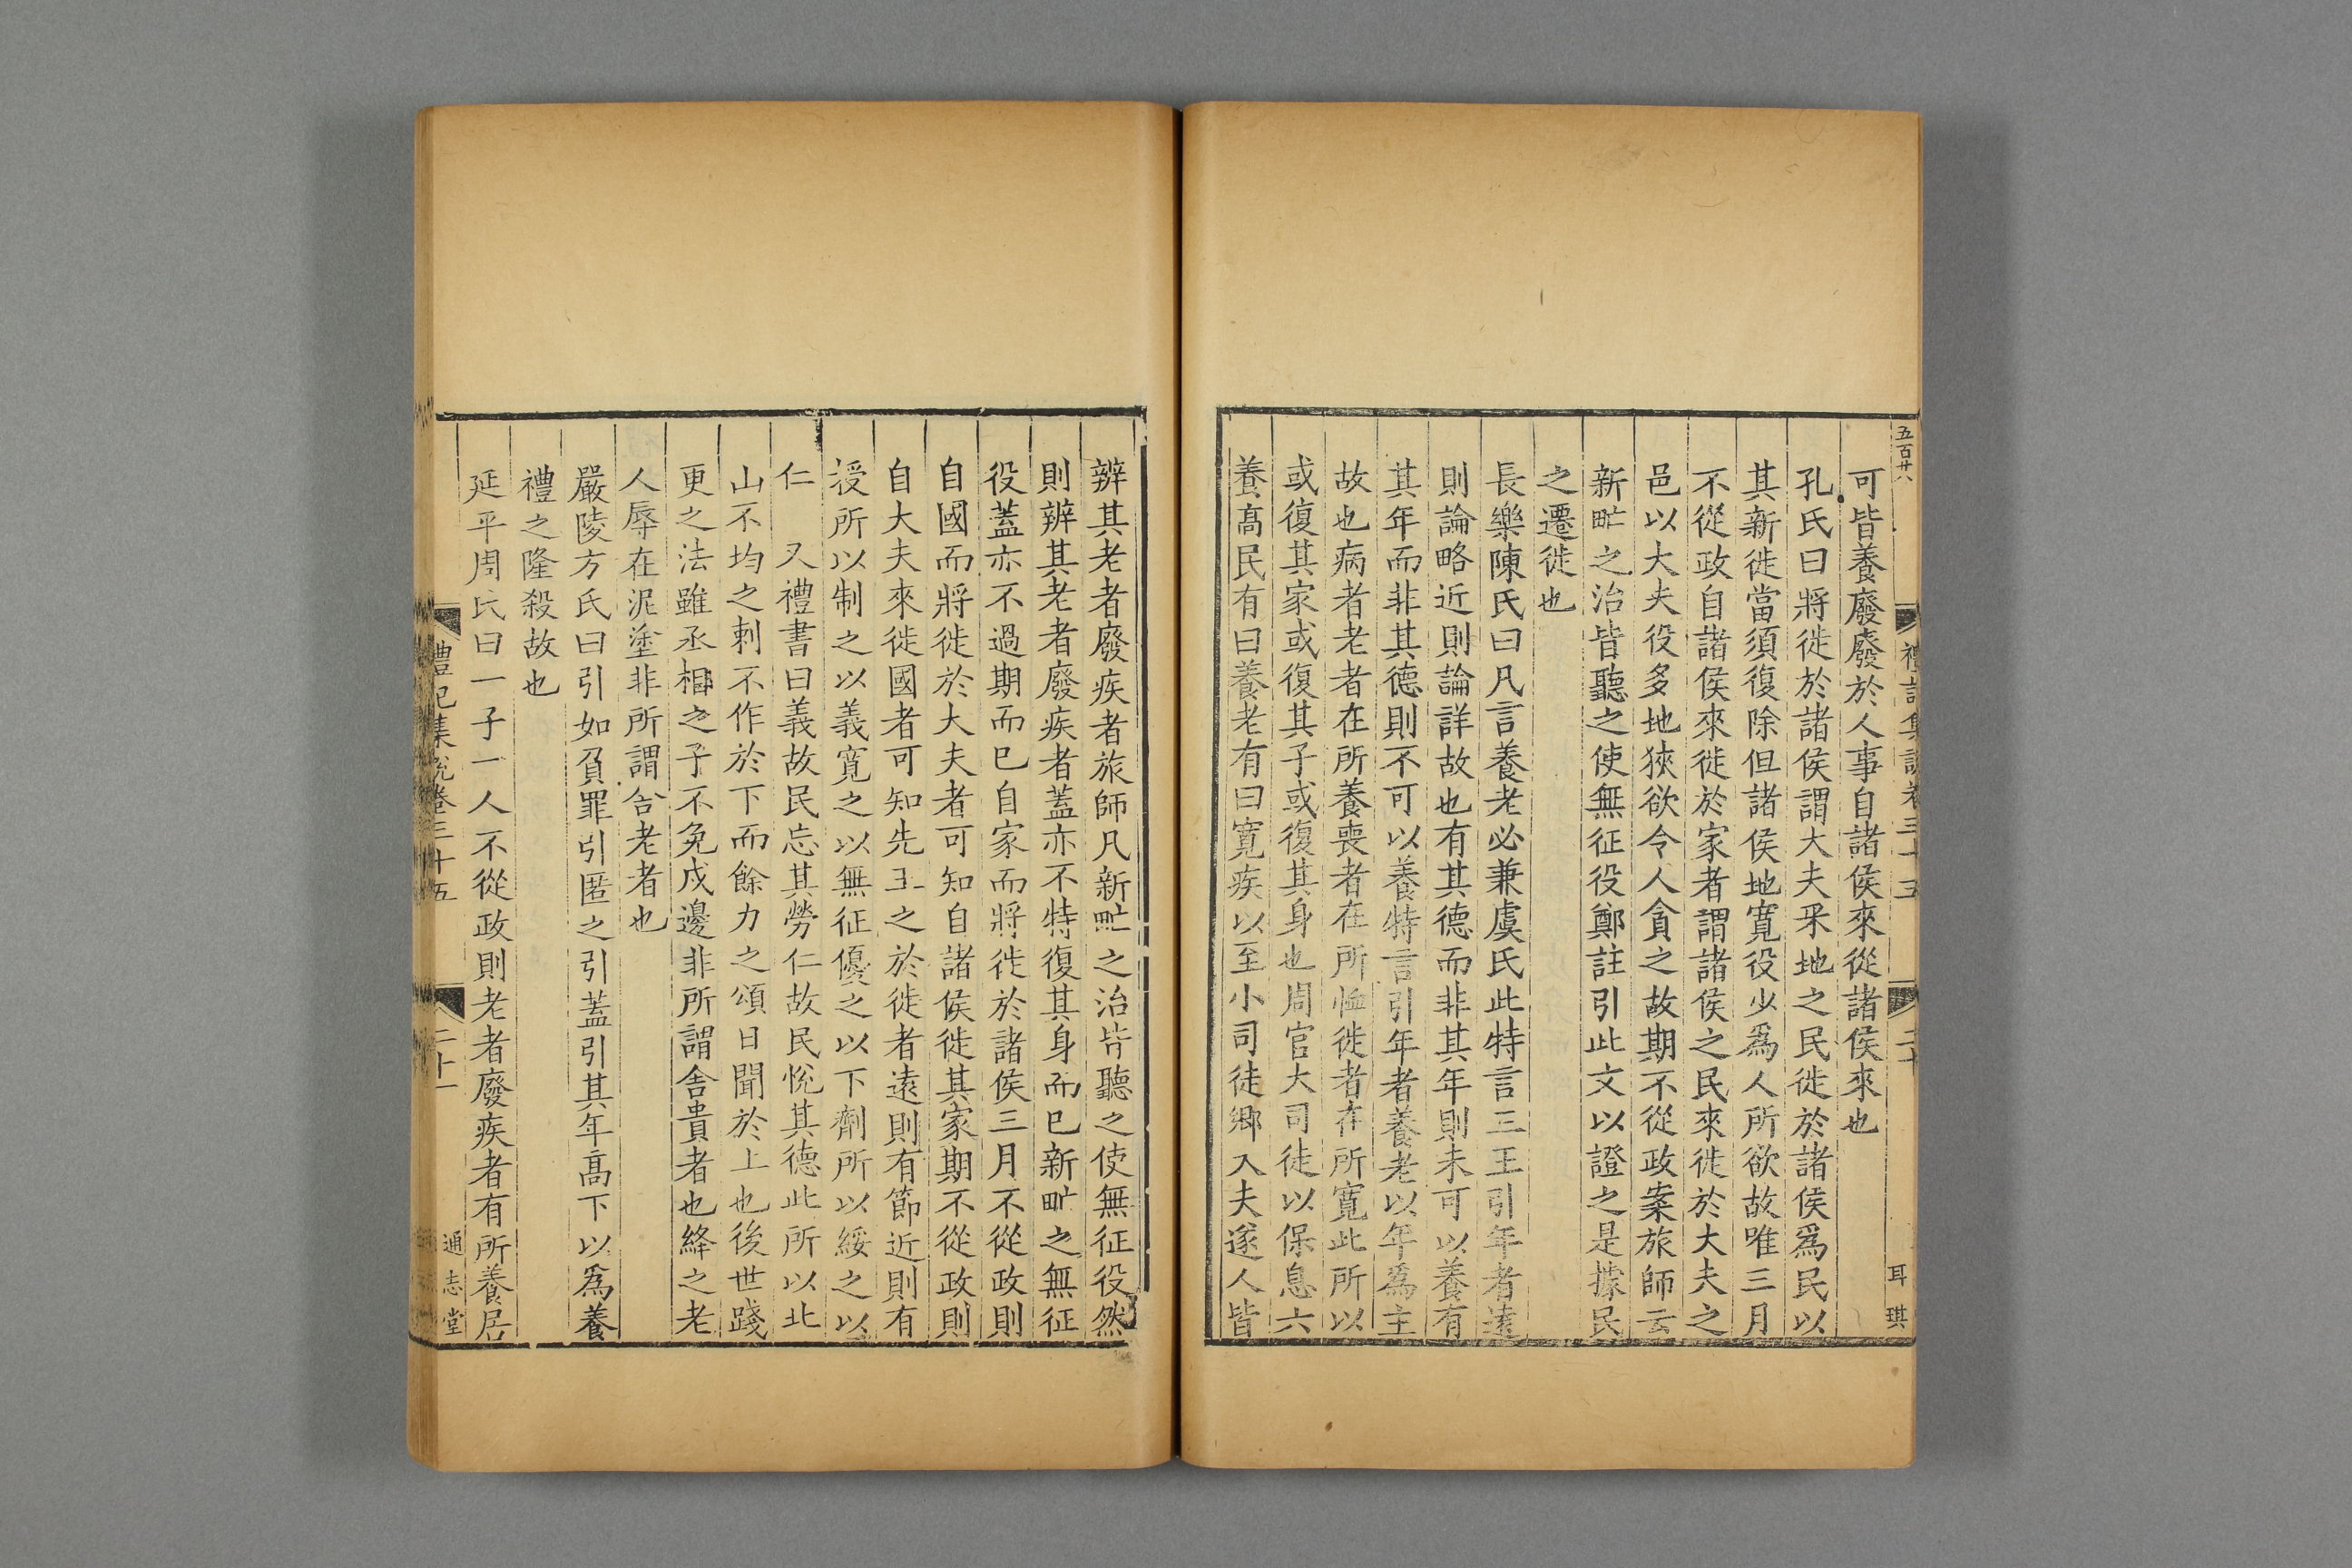 五百廿八
禮記集說卷三十五
二十
耳琪
可皆養廢廢於人事自諸侯來從諸侯來也
孔氏曰將徙於諸侯謂大夫采地之民徙於諸侯爲民以
其新徙當須復除但諸侯地寬役少爲人所欲故唯三月
不從政自諸侯來徙於家者謂諸侯之民來徙於大夫之
邑以大夫役多地狹欲令人貪之故期不從政案旅師云
新甿之治皆聽之使無征役鄭註引此文以證之是據民
之遷徙也
長樂陳氏曰凡言養老必兼虞氏此特言三王引年者遠
則論略近則論詳故也有其德而非其年則未可以養有
其年而非其德則不可以養特言引年者養老以年爲主
故也病者老者在所養喪者在所恤徙者在所寬此所以
或復其家或復其子或復其身也周官大司徒以保息六
養髙民有曰養老有曰寬疾以至小司徒鄉入夫遂人皆
辨其老者廢疾者旅師凡新甿之治皆聽之使無征役然
則辨其老者廢疾者蓋亦不特復其身而已新甿之無征
役蓋亦不過期而已自家而將徙於諸侯三月不從政則
自國而將徙於大夫者可知自諸侯徙其家期不從政則
自大夫來徙國者可知先王之於徙者遠則有節近則有
授所以制之以義寬之以無征優之以下劑所以綏之以
仁　又禮書曰義故民忘其勞仁故民悅其德此所以北
山不均之刺不作於下而餘力之頌日聞於上也後世踐
更之法雖丞相之子不免戍邊非所謂舍貴者也絳之老
人辱在泥塗非所謂舍老者也
嚴陵方氏曰引如負罪引匿之引蓋引其年髙下以爲養
禮之隆殺故也
延平周氏曰一子一人不從政則老者廢疾者有所養居
禮記集說卷三十五
二十一
通志堂